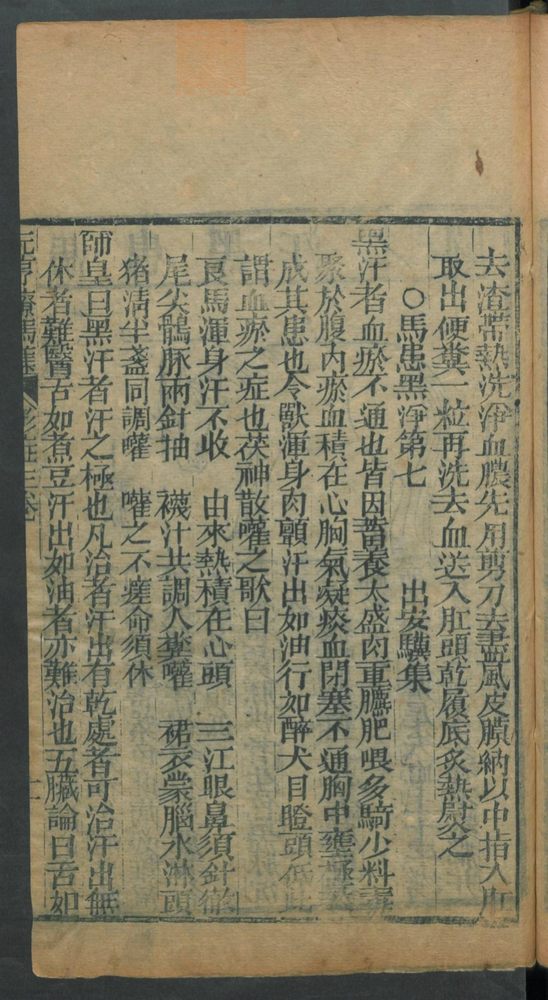 去渣帶熱洗淨血膿先用剪刀去盡風皮膜納以中指入肛
取出便糞一粒再洗去血送入肛頭乾履底炙熱熨之
○馬患黑汗第七　出安驥集
黑汗者血瘀不通也皆因蓄養太盛肉重膘肥喂多騎少料毒
聚於腹内瘀血積在心胸氣凝痰血閉塞不通胸中壅極
成其患也令獸渾身肉顫汗出如油行如醉犬目瞪頭低此
謂血瘀之症也茯神散嚾之歌曰
良馬渾身汗不收　由來熱積在心頭　三江眼鼻須針徹
尾尖鶻脉兩針抽　襪汁共調人糞嚾　裙衣蒙腦水淋頭
猪清半盞同調嚾　嚾之不瘥命須休
師皇曰黑汗者汗之極也凡治者汗出有乾處者可治汗出無
休者難醫舌如煮豆汗出如油者亦難治也五臟論曰舌如
元亨療馬集　卷